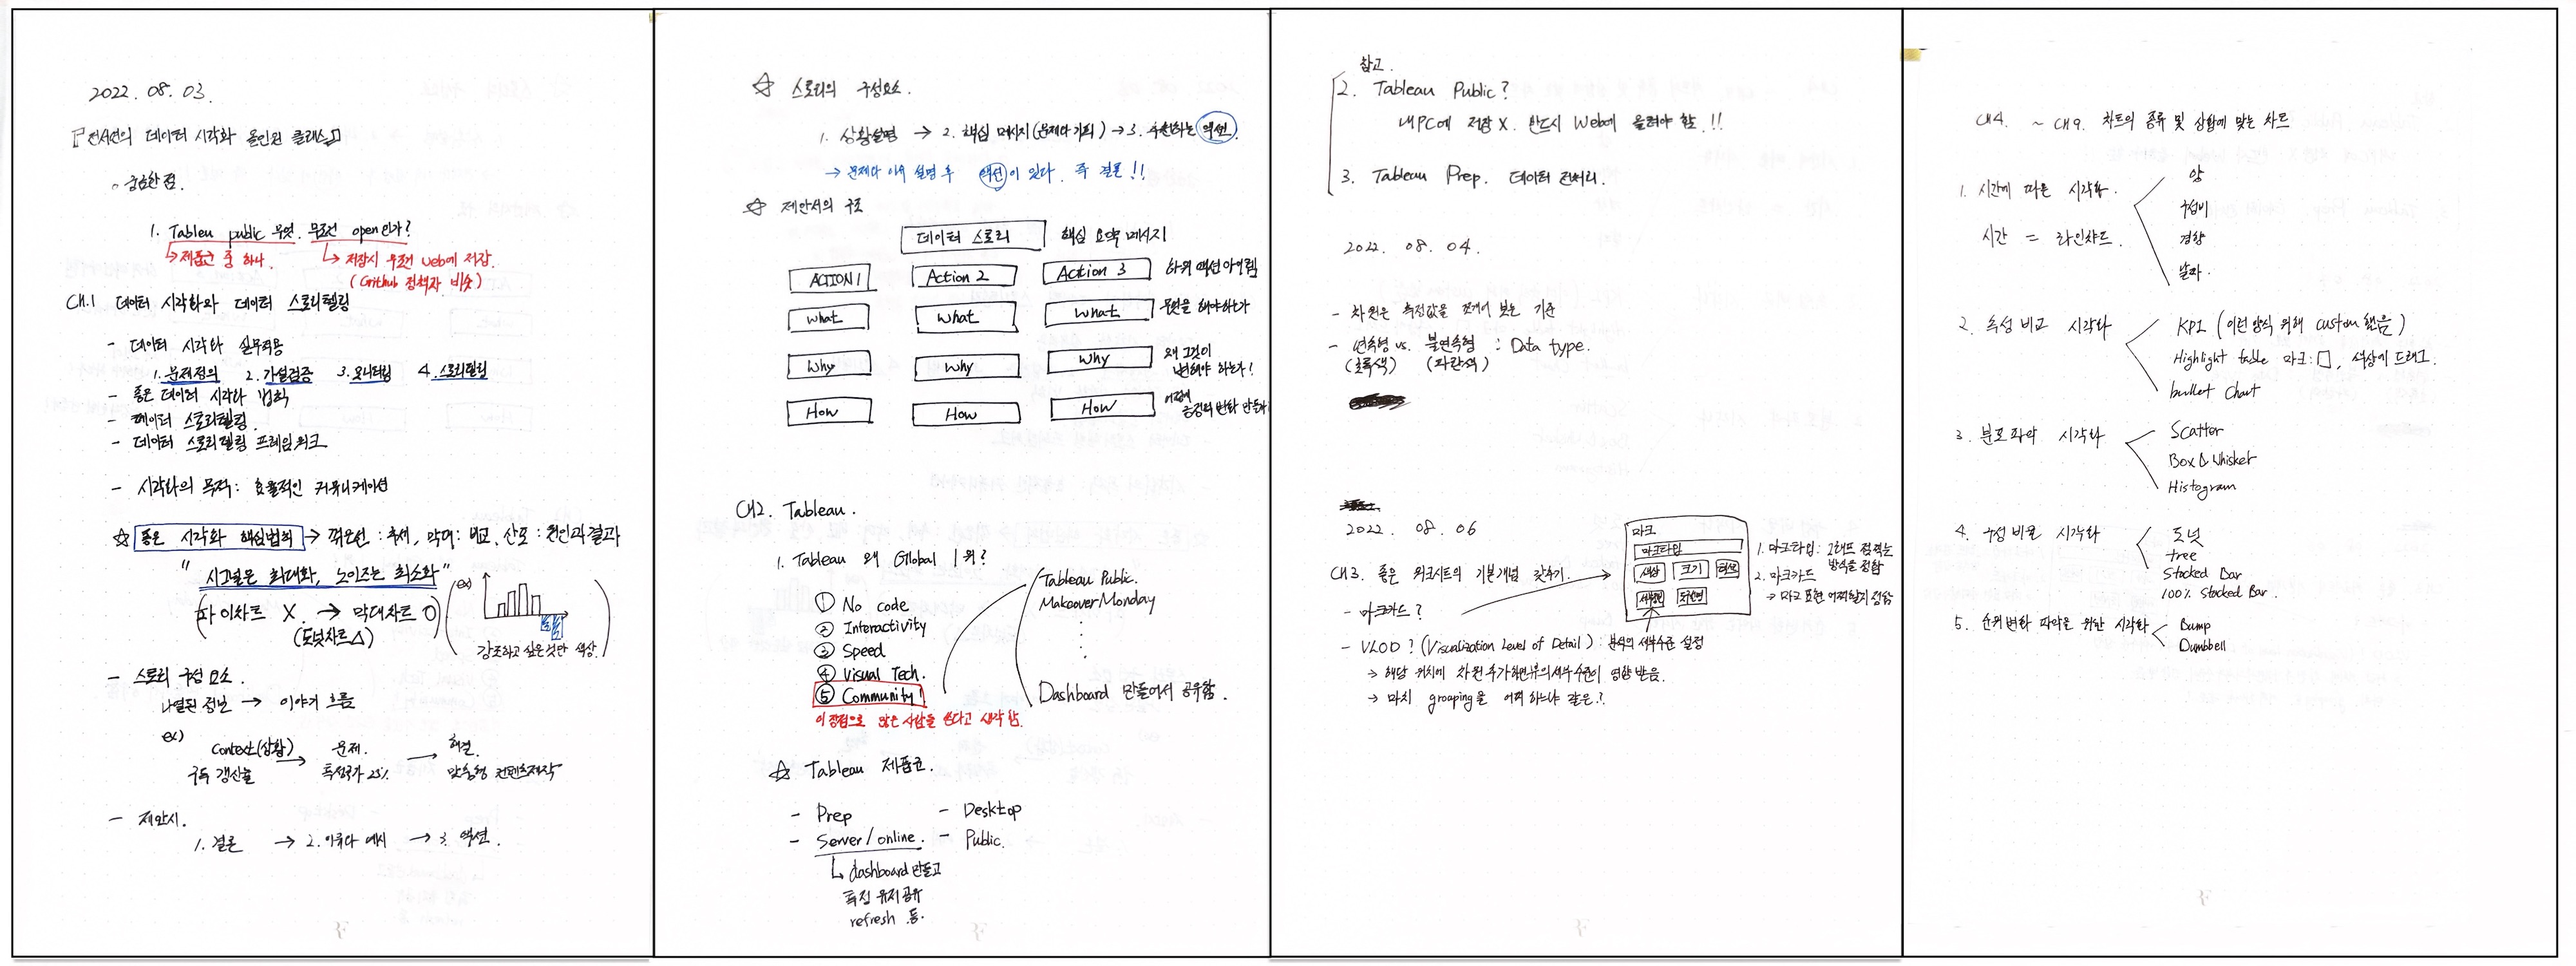 2022. 08. 03.
『전시연의 데이터 시각화 올인원 클래스』
◦ 궁금한 점.
1. Tableu public 무엇. 무조건 open인가?
↳ 제품군 중 하나. ↳ 저장시 무조건 web에 저장.
(Github 정책과 비슷)
CH.1 데이터 시각화와 데이터 스토리텔링
- 데이터 시각화 실무적용
1. 문제정의 2. 가설검증 3. 모니터링 4. 스토리텔링
- 좋은 데이터 시각화 법칙
- 데이터 스토리텔링.
- 데이터 스토리텔링 프레임워크
- 시각화의 목적: 효율적인 커뮤니케이션
☆ 좋은 시각화 핵심법칙 → 꺾은선 : 추세, 막대 : 비교, 산포 : 원인과 결과
" 시그널은 최대화, 노이즈는 최소화 "
(파이차트 X → 막대차트 O)
(도넛차트 △)
ex)
강조하고 싶은 것만 색상.
- 스토리 구성 요소.
나열된 정보 → 이야기 흐름
ex)
Context(상황) → 문제. → 해결.
구독 갱신율 특정국가 25% 맞춤형 컨텐츠제작
- 제안서.
1. 결론 → 2. 이유와 예시 → 3. 액션.
☆ 스토리의 구성요소.
1. 상황설명 → 2. 핵심 메시지(문제와 기회) → 3. 수반하는 액션.
→ 문제와 이유 설명 후 액션이 있다. 즉 결론!!
☆ 제안서의 구조
데이터 스토리 핵심 요약 메시지
ACTION 1 Action 2 Action 3 하위 액션아이템
What What What 무엇을 해야하는가
Why Why Why 왜 그것이
변해야 하는가!
How How How 어떻게
긍정의 변화 만들까
CH2. Tableau.
1. Tableau 왜 Global 1위?
① No code
② Interactivity
③ Speed
④ Visual Tech.
⑤ Community!
이 장점으로 많은 사람들 쓴다고 생각함.
Tableau Public.
MakeoverMonday
Dashboard 만들어서 공유함.
☆ Tableau 제품군.
- Prep - Desktop
- Server/online. - Public.
↳ dashboard 만들고
특정 유저 공유
refresh 등.
참고.
2. Tableau Public?
내PC에 저장 X. 반드시 Web에 올려야 함.!!
3. Tableau Prep. 데이터 전처리.
2022. 08. 04.
- 차원은 측정값을 쪼개어 보는 기준
- 연속형 vs. 불연속형 : Data type.
(초록색) (파란색)
2022. 08. 06
CH3. 좋은 워크시트의 기본개념 갖추기.
- 마크카드?
마크
마크타입
색상 크기
1. 마크타입: 그래프 점찍는
방식을 정함
2. 마크카드
→ 마크 표현 어찌할지 정함
- VLOD? (Visualization Level of Detail) : 분석의 세부수준 설정
→ 해당 위치에 차원 추가하면 뷰의 세부수준이 영향 받음.
→ 마치 grouping을 어찌 하느냐 같은.?
CH4. ~ CH9. 차트의 종류 및 상황에 맞는 차트
1. 시간에 따른 시각화.
시간 = 라인차트.
양
구성비
경향
날짜.
2. 속성 비교 시각화
KPI (이런 방식 위해 custom 했음)
Highlight table 마크:□, 색상에 드래그.
bullet Chart
3. 분포파악 시각화
Scatter
Box & Whisker
Histogram
4. 구성 비율 시각화
도넛
tree
Stacked Bar
100% Stacked Bar.
5. 순위변화 파악을 위한 시각화
Bump
Dumbbell